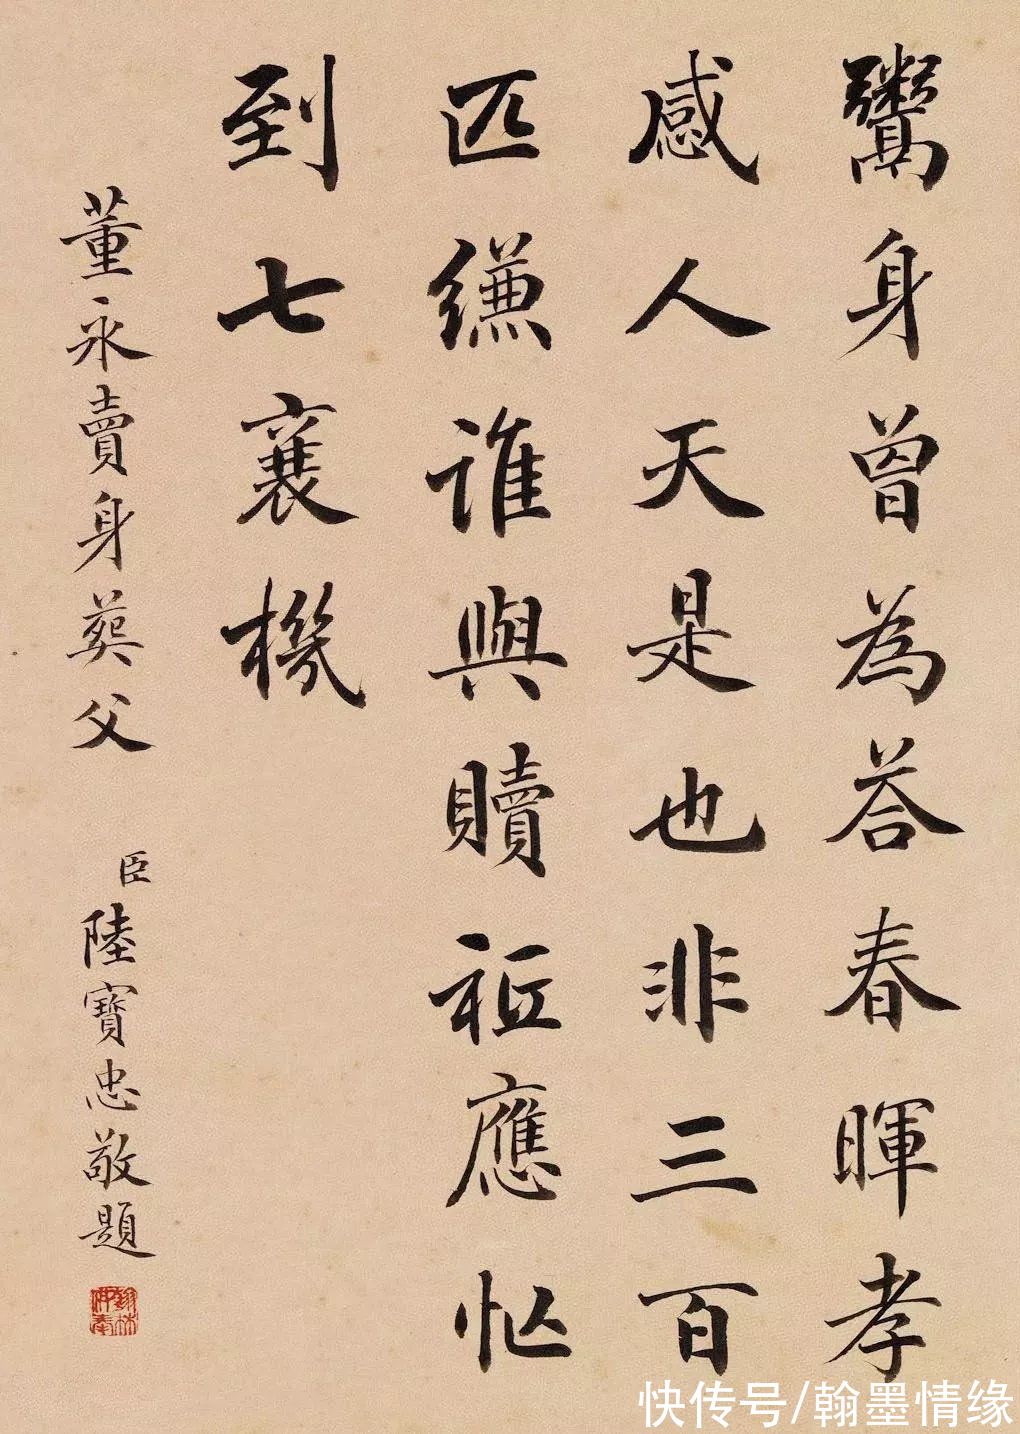 鬻身曾為荅春暉孝
感人天是也非三百
匹縑誰與贖祗應忙
到七襄機
董永賣身葬父
臣陸寶忠敬題
快传号/翰墨情缘